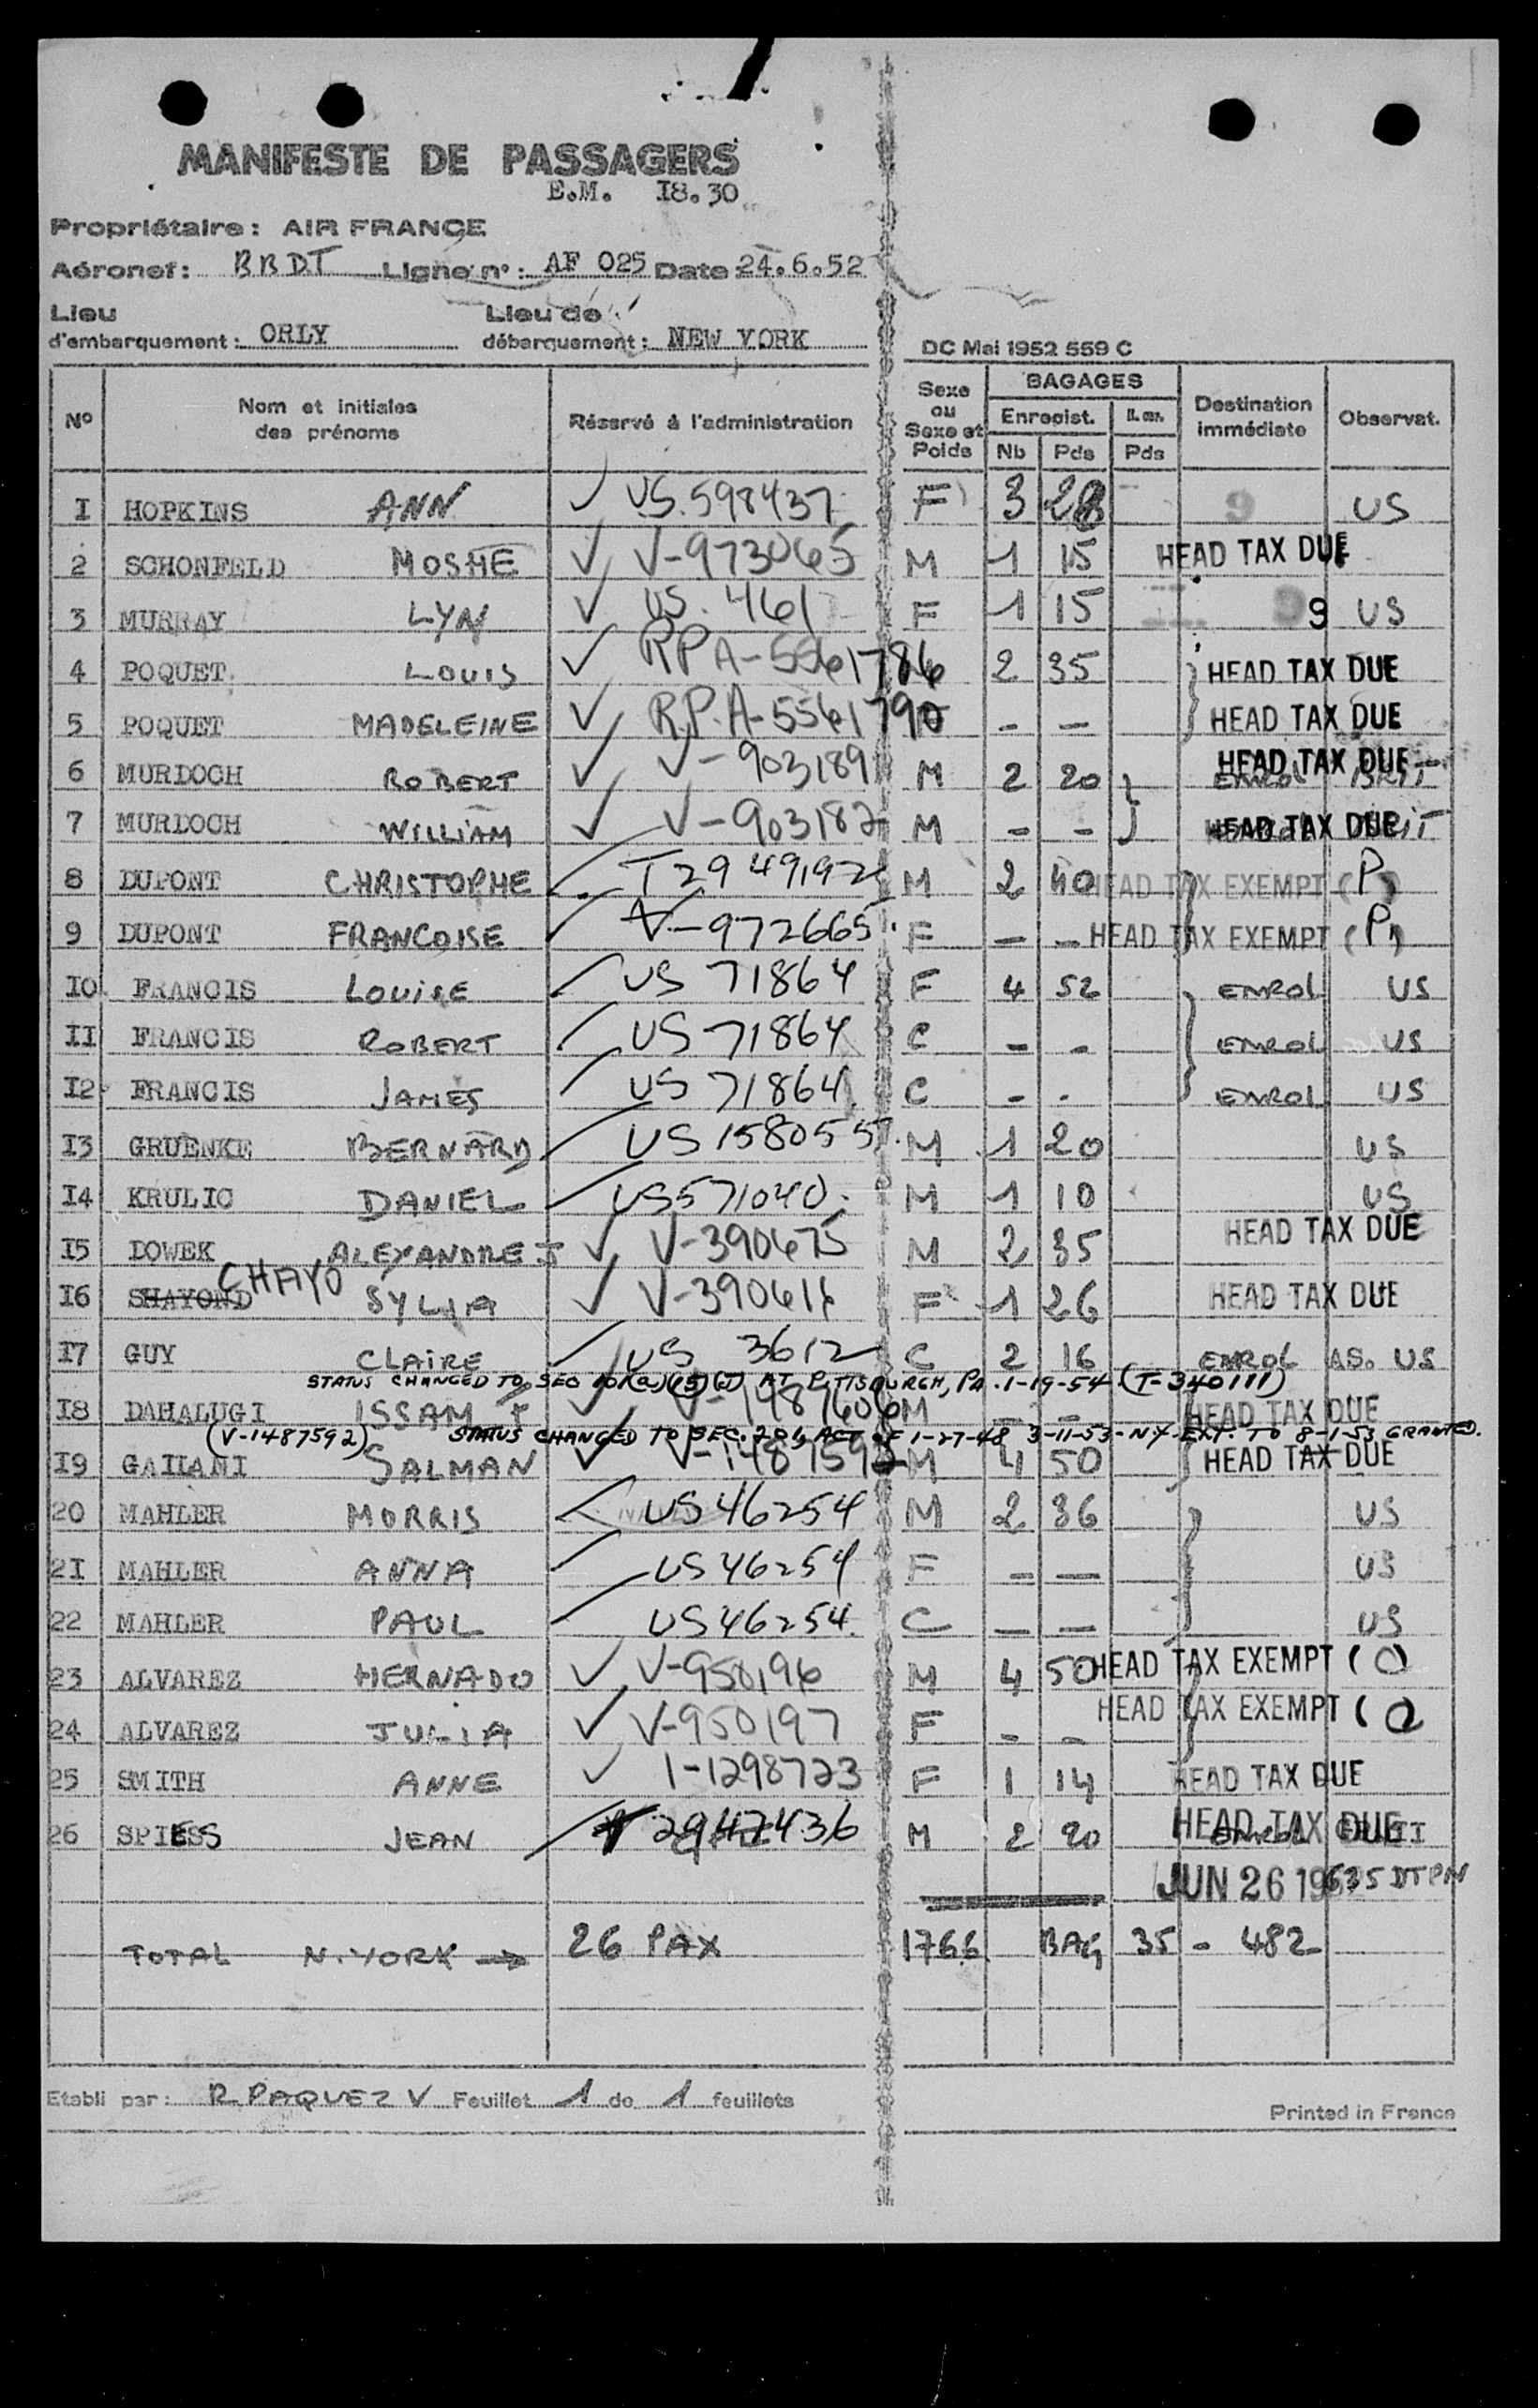 MANIFESTE DE PASSAGERS
E.M. I8.30
Propriétaire: AIR FRANCE
Aéronef: BBDT Ligne n°: AF 025 Date 24.6.52
Lieu d'embarquement: ORLY Lieu de débarquement: NEW YORK
DC Mai 1952 559 C
N° Nom et initiales des prénoms Réservé à l'administration Sexe ou Sexe et Poids BAGAGES Enregist. Nb Pds Pds Destination immédiate Observat.
I HOPKINS ANN ✓ US.598437 F 3 28 9 US
2 SCHONFELD MOSHE ✓ V-973065 M 1 15 HEAD TAX DUE
3 MURRAY LYN ✓ US.461 F 1 15 9 US
4 POQUET LOUIS ✓ RPA-5561786 2 35 HEAD TAX DUE
5 POQUET MADELEINE ✓ RP.A-5561790 - - HEAD TAX DUE
6 MURDOCH ROBERT ✓ V-903189 M 2 20 HEAD TAX DUE
7 MURDOCH WILLIAM ✓ V-903187 M - - HEAD TAX DUE
8 DUPONT CHRISTOPHE T2949192 M 2 40 HEAD TAX EXEMPT (P)
9 DUPONT FRANCOISE V-972665 F - - HEAD TAX EXEMPT (P)
IO FRANCIS LOUISE US 71864 F 4 52 ENROL US
II FRANCIS ROBERT US 71864 C - - ENROL US
I2 FRANCIS JAMES US 71864 C - - ENROL US
I3 GRUENKE BERNARD US 1580557 M 1 20 US
I4 KRULIC DANIEL US571040 M 1 10 US
I5 DOWEK ALEXANDRE J ✓ V-390675 M 2 35 HEAD TAX DUE
I6 SHAYOND CHAYO SYLIA ✓ F 1 26 HEAD TAX DUE
I7 GUY CLAIRE US 3612 C 2 16 ENROL AS. US
STATUS CHANGED TO SEC AT PITTSBURGH, PA. 1-19-54 (T-340111)
I8 DAHALUGI ISSAM ✓ M - - HEAD TAX DUE
(V-1487592) STATUS CHANGED TO SEC. 201, ACT OF 1-27-48 3-11-53-NY-EXT. TO 8-1-53 GRANTED.
I9 GAILANI SALMAN ✓ V-1487592 M 4 50 HEAD TAX DUE
20 MAHLER MORRIS US 46254 M 2 36 US
2I MAHLER ANNA US 46254 F - - US
22 MAHLER PAUL US 46254. C - - US
23 ALVAREZ HERNADO ✓ V-950196 M 4 50 HEAD TAX EXEMPT (
24 ALVAREZ JULIA ✓ V-950197 F - - HEAD TAX EXEMPT (
25 SMITH ANNE ✓ 1-1298723 F 1 14 HEAD TAX DUE
26 SPIESS JEAN 2947436 M 2 20 HEAD TAX DUE
JUN 26 19
TOTAL N.YORK → 26 PAX 1766 BAG 35 - 482
Etabli par: R PAQUEZ V Feuillet 1 de 1 feuillets
Printed in France